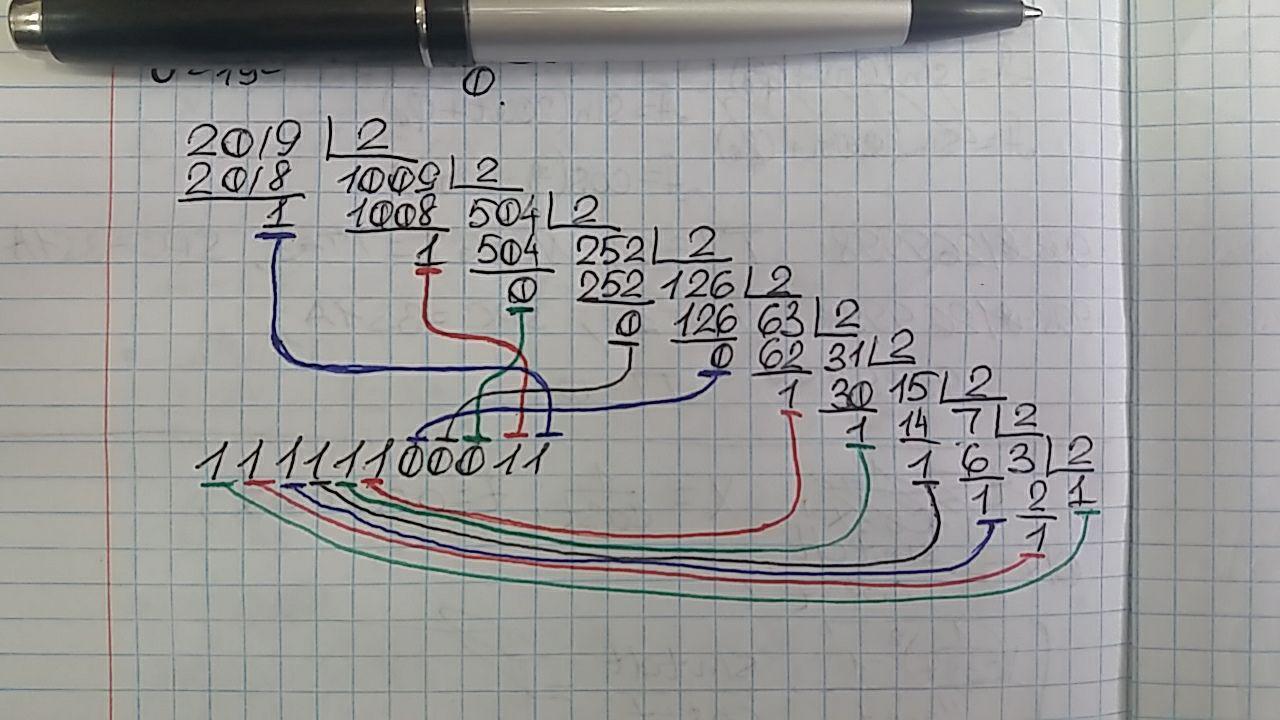 0
2019 2
2018 1009 2
1 1008 504 2
1 504 252 2
0 252 126 2
0 126 63 2
0 62 31 2
1 30 15 2
1 14 7 2
1 6 3 2
1 2 1
1
11111100011